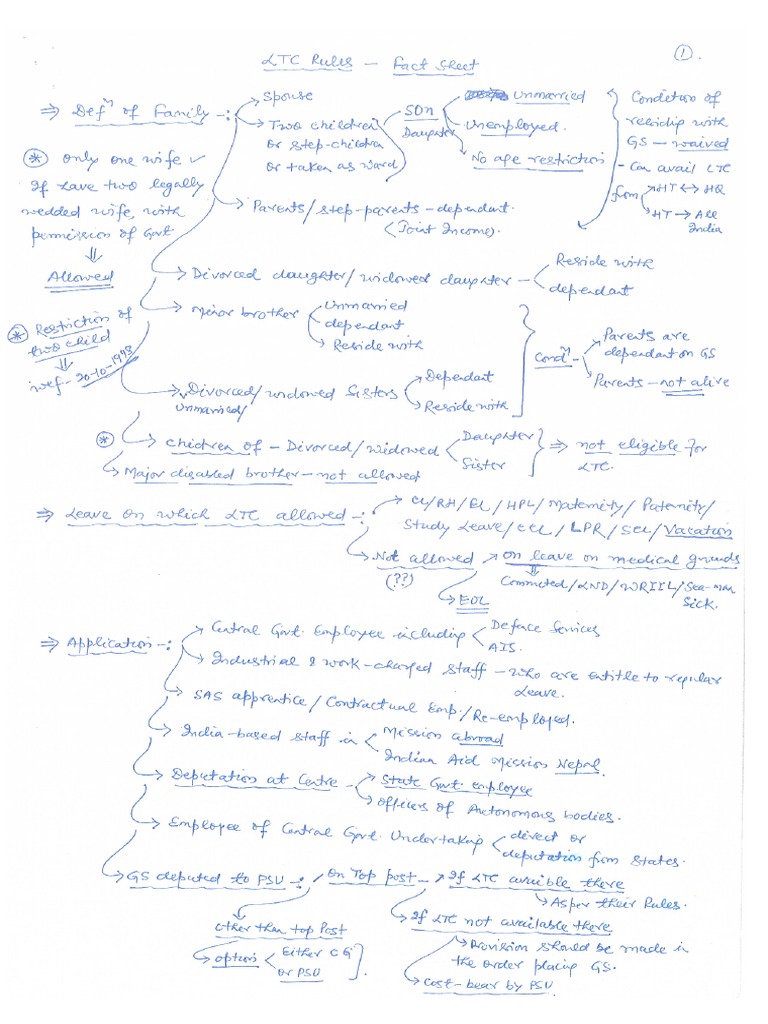 1.
LTC Rules - Fact Sheet
⇒ Defn of Family -:
Spouse
Two children
or step-children
or taken as ward
SON
Daughter
Unmarried
Unemployed.
No age restriction
Condition of
residip with
GS - waived
- Can avail LTC
from HT ↔ HQ
HT → All
India
* Only one wife ✓
If have two legally
wedded wife, with
permission of Govt
⇓
Allowed
Parents/step-parents - dependant.
(Joint Income).
Divorced daughter/widowed daughter -
Reside with
dependant
Minor brother
Unmarried
dependant
Reside with
* Restriction of
two child
⇓
wef - 20-10-1998
Divorced/widowed Sisters
Unmarried/
Dependant
Reside with
Condn -
Parents are
dependant on GS
Parents - not alive
* Chidren of - Divorced/widowed
Daughter
Sister
⇒ not eligible for
LTC.
Major disabled brother - not allowed
⇒ Leave on which LTC allowed -:
CL/RH/EL/HPL/Maternity/Paternity/
Study Leave/CCL/LPR/SCL/Vacation
Not allowed
(??)
on leave on medical grounds
⇓
Commuted/LND/WRIIL/Sea-man
Sick.
EOL
⇒ Application -:
Central Govt. Employee including
Deface Sevices
AIS.
Industrial & work-charged staff - who are entitle to regular
Leave.
SAS apprentice/Contractual Emp./Re-employed.
India-based staff in
Mission abroad
Indian Aid Mission Nepal.
Deputation at Centre -
State Govt employee
officers of Autonomous bodies.
Employee of Central Govt. Undertaking
direct or
deputation from States.
GS deputed to PSU -:
on Top post -
If LTC avaible there
As per their Rules.
If LTC not available there
Provision should be made in
the order placing GS.
Cost-bear by PSU
other than top Post
option
Either CG
or PSU